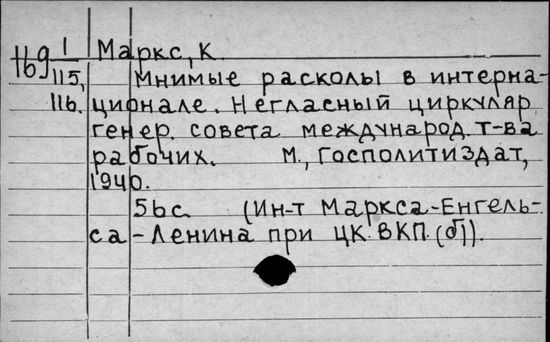 169 1/115, Маркс, К.
Мнимые расколы в интерна-
116. ционале. Негласный циркуляр
генер. совета международ. т-ва
рабочих. М., Госполитиздат,
1940.
56с (Ин-т Маркса-Енгель-
са-Ленина при ЦК ВКП(б)).